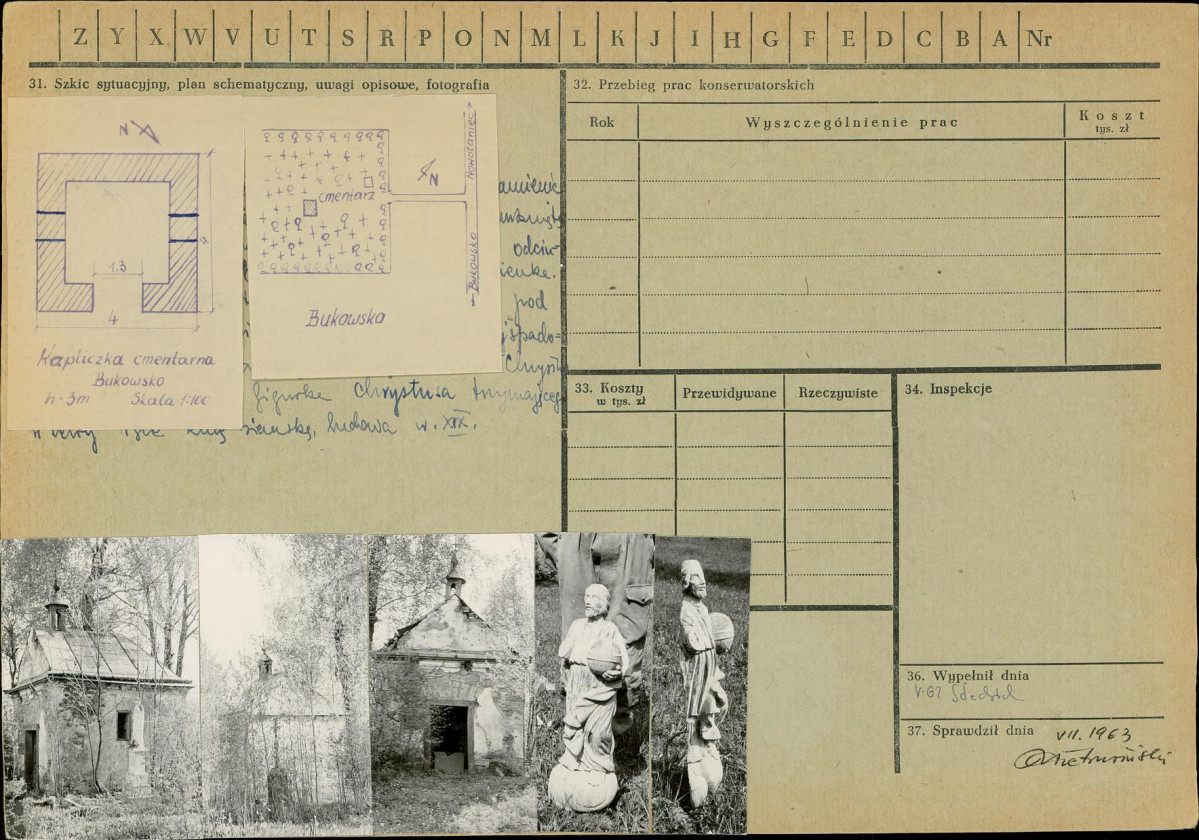 Z Y X W V U T S R P O N M L K J I H G F E D C B A Nr
31. Szkic sytuacyjny, plan schematyczny, uwagi opisowe, fotografia
N
1.3
4
4
Kapliczka cmentarna
Bukowsko
h-3m Skala 1:100
cmentarz
N
Nowotaniec
Bukowsko
Bukowsko
odciu-
pod
figurka Chrystusa
ludowa w. XIX.
32. Przebieg prac konserwatorskich
Rok
Wyszczególnienie prac
Koszt
tys. zł
33. Koszty
w tys. zł
Przewidywane
Rzeczywiste
34. Inspekcje
36. Wypełnił dnia
37. Sprawdził dnia VII. 1963